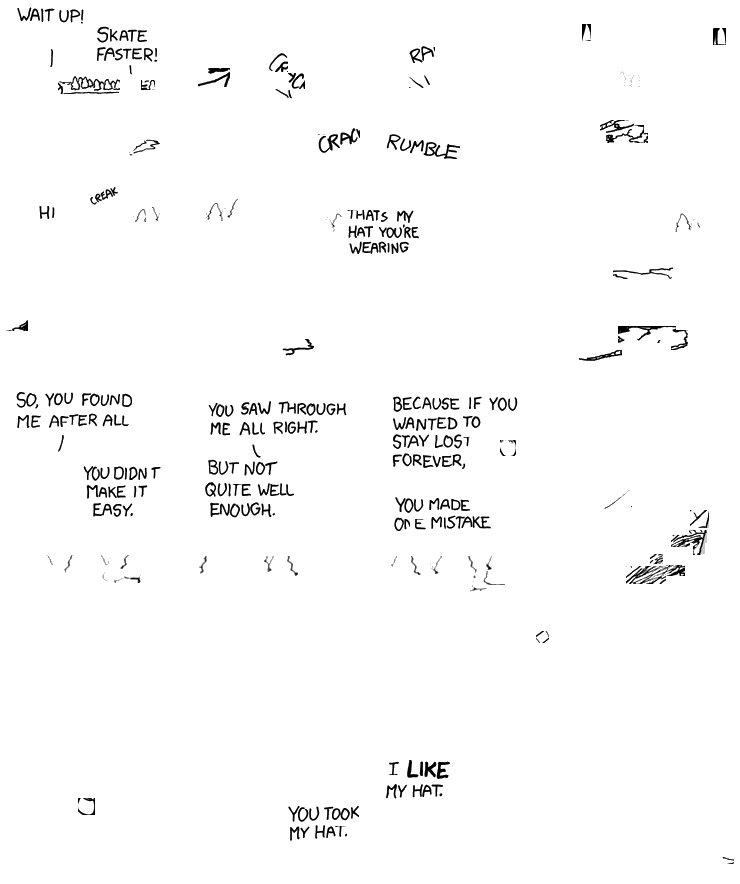 WAIT UP!
SKATE
FASTER!
RUMBLE
HI
CREAK
THATS MY
HAT YOU'RE
WEARING
SO, YOU FOUND
ME AFTER ALL
YOU DIDNT
MAKE IT
EASY.
YOU SAW THROUGH
ME ALL RIGHT.
BUT NOT
QUITE WELL
ENOUGH.
BECAUSE IF YOU
WANTED TO
STAY LOST
FOREVER,
YOU MADE
ONE MISTAKE
I LIKE
MY HAT.
YOU TOOK
MY HAT.